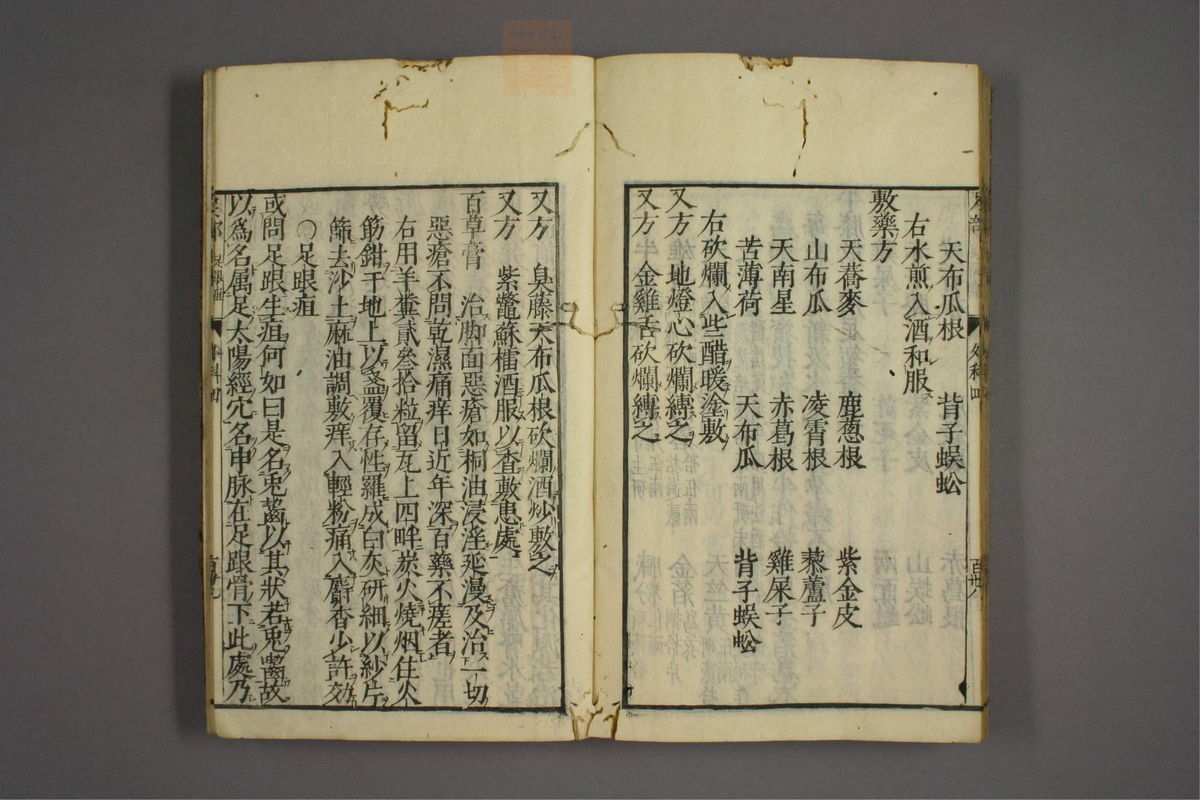 天布瓜根 背子蜈蚣
右水煎入酒和服
敷藥方
天蕎麥 鹿葱根 紫金皮
山布瓜 凌霄根 藜蘆子
天南星 赤葛根 雞屎子
苦薄荷 天布瓜 背子蜈蚣
右砍爛入些醋暖塗敷
又方 地燈心砍爛縛之
又方 金雞舌砍爛縛之
又方 臭藤天布瓜根砍爛酒炒敷之
又方 紫鼈蘇櫑酒服以査敷患處
百草膏 治脚面惡瘡如桐油浸淫延漫及治一切
惡瘡不問乾濕痛痒日近年深百藥不瘥者
右用羊糞貳叄拾粒留瓦上四畔炭火燒烟住火
筋鉗干地上以盞覆存性羅成白灰研細以紗片
篩去沙土麻油調敷痒入輕粉痛入麝香少許効
○足跟疽
或問足跟生疽何如曰是名兎齧以其狀若兎齧故
以爲名属足太陽經穴名申脉在足跟骨下此處乃
外科四
百卅九